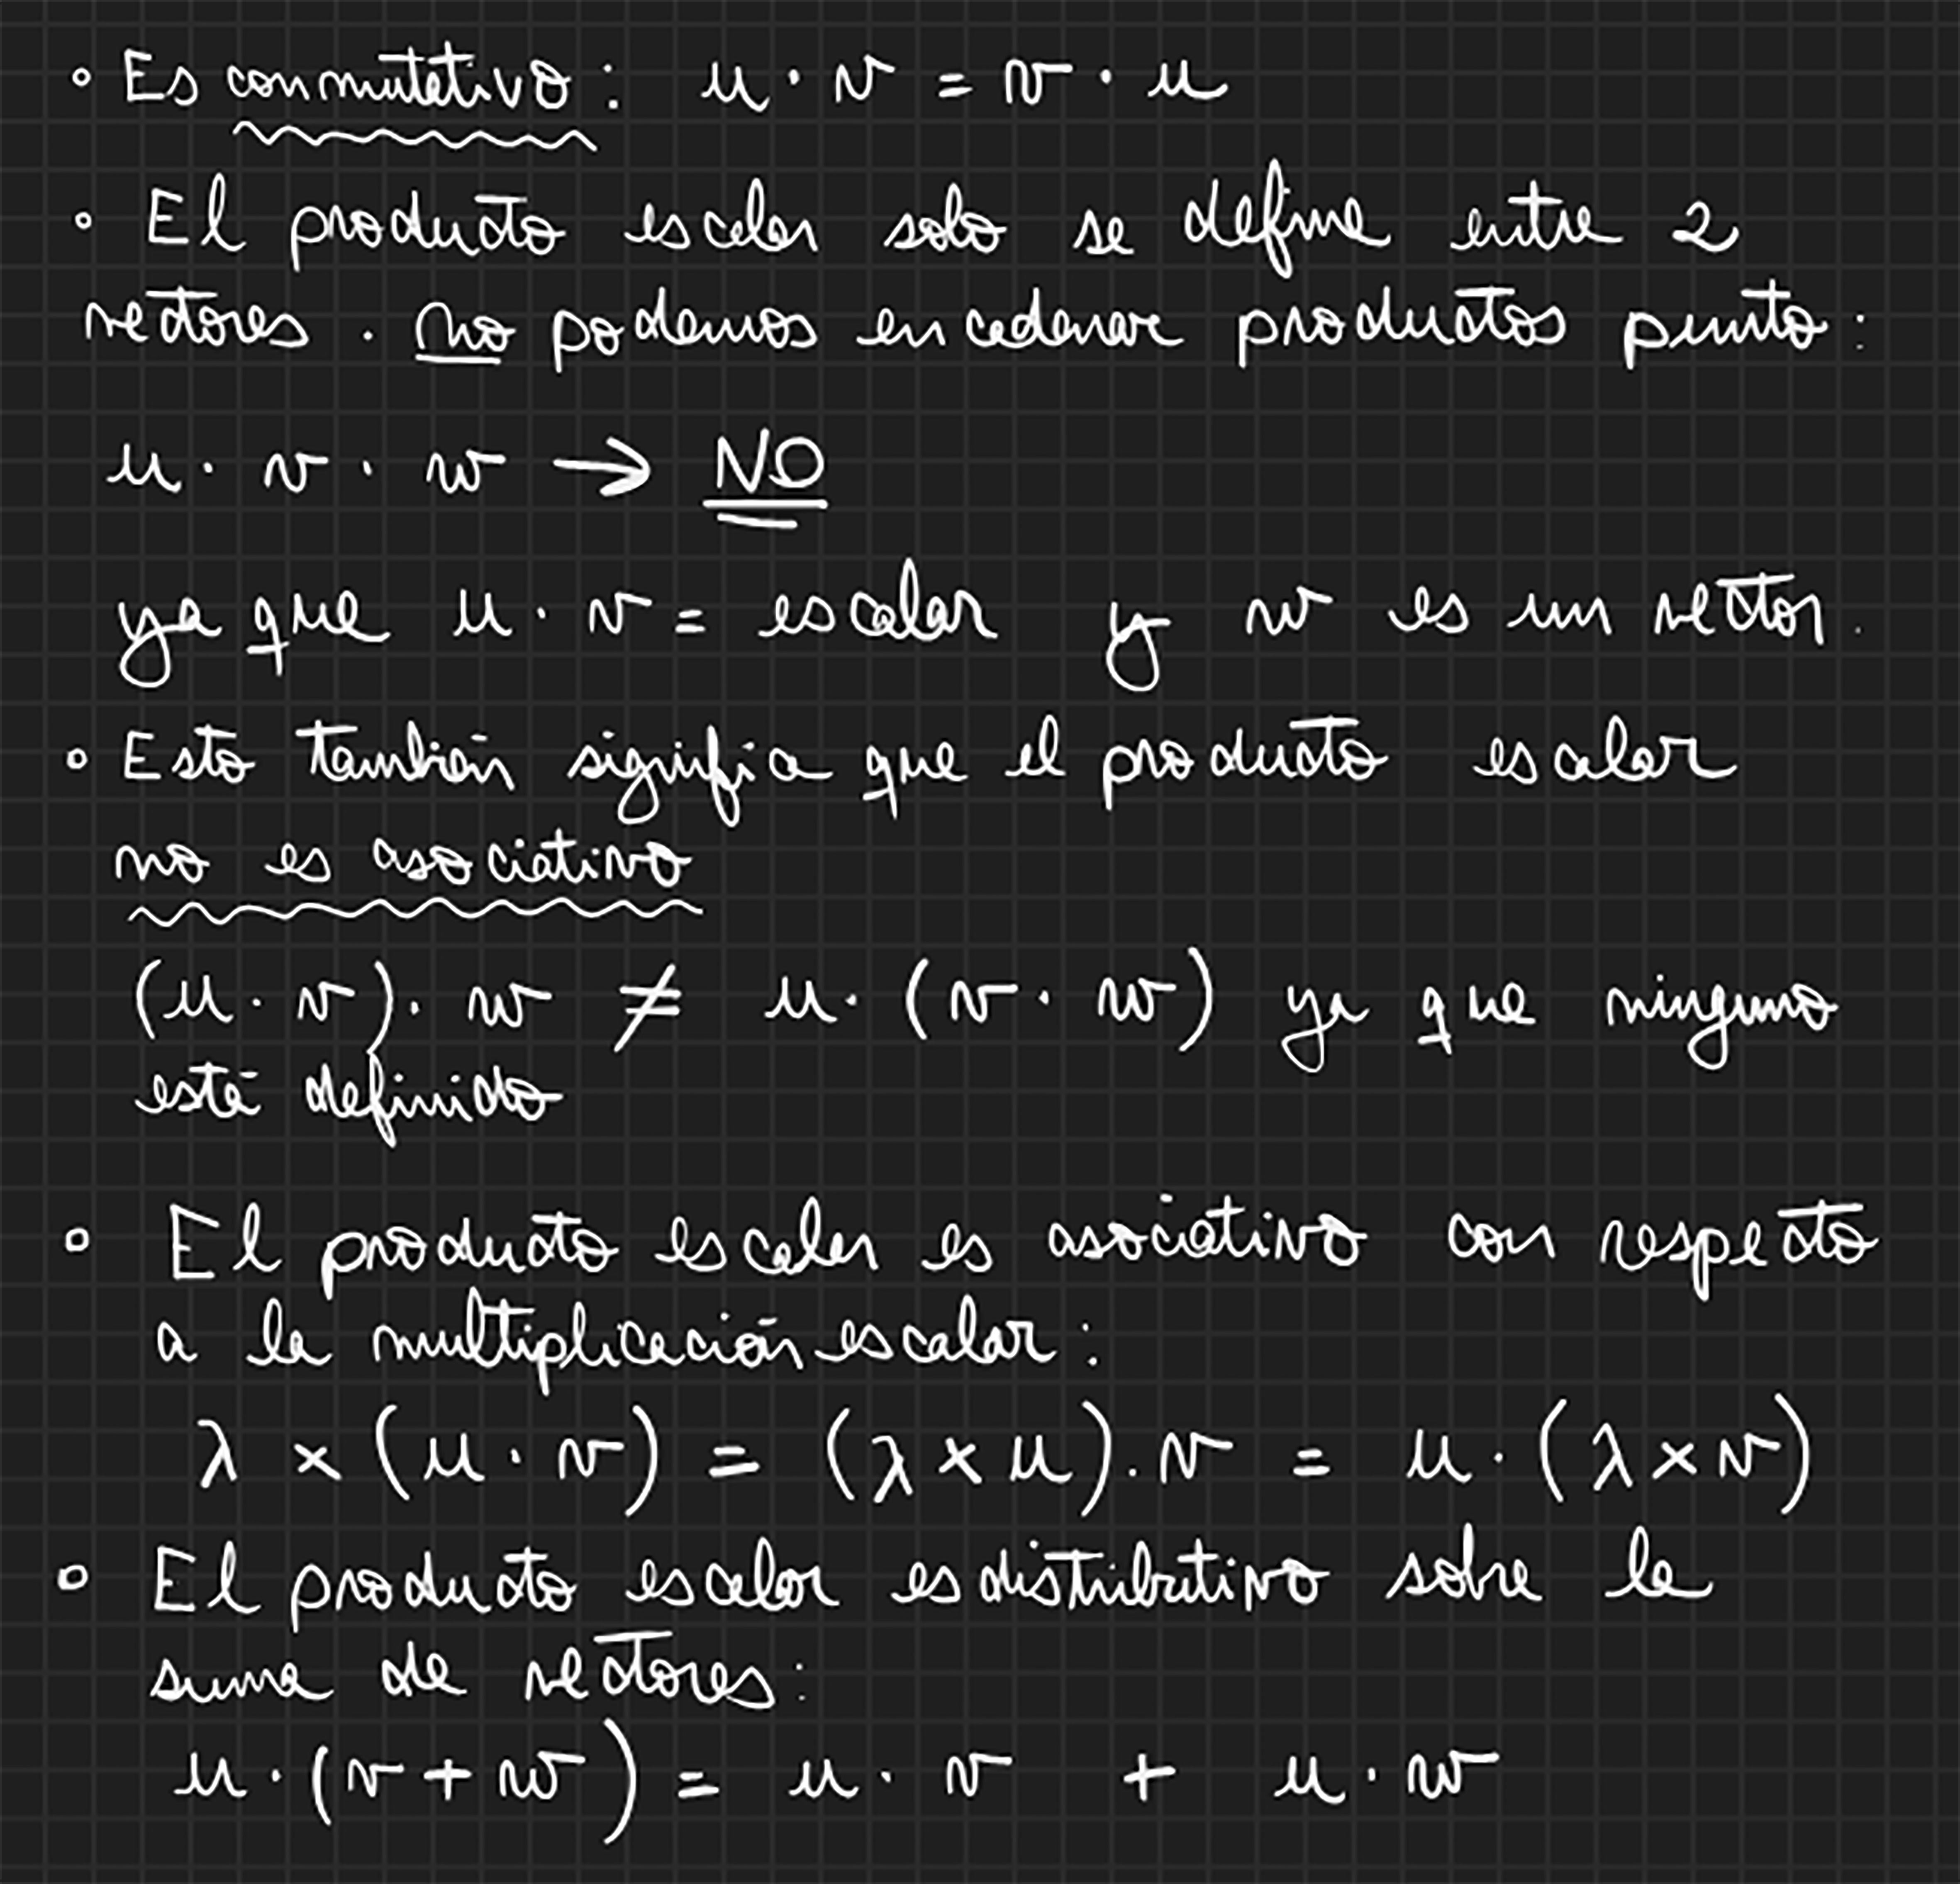 ◦ Es conmutativo: u · v = v · u
◦ El producto escalar solo se define entre 2
vectores. no podemos encadenar productos punto:
u · v · w → NO
ya que u · v = escalar y w es un vector.
◦ Esto también significa que el producto escalar
no es asociativo
(u · v) · w ≠ u · (v · w) ya que ninguno
está definido
◦ El producto escalar es asociativo con respecto
a la multiplicación escalar:
λ × (u · v) = (λ × u) · v = u · (λ × v)
◦ El producto escalar es distributivo sobre la
suma de vectores:
u · (v + w) = u · v + u · w